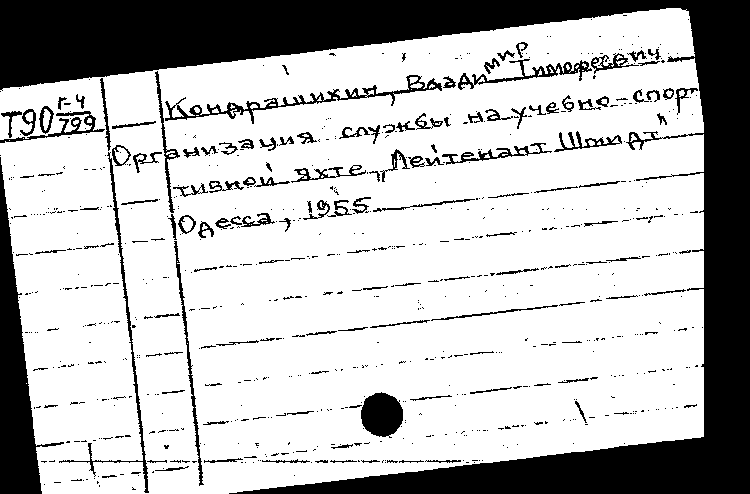 Т90 Г-4/799
Кондрашихин, Владимир Тимофеевич
Организация службы на учебно-спор-
тивной яхте „Лейтенант Шмидт"
Одесса, 1955